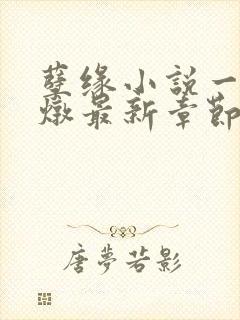 孽缘小説一
燉最新章節
唐夢若影